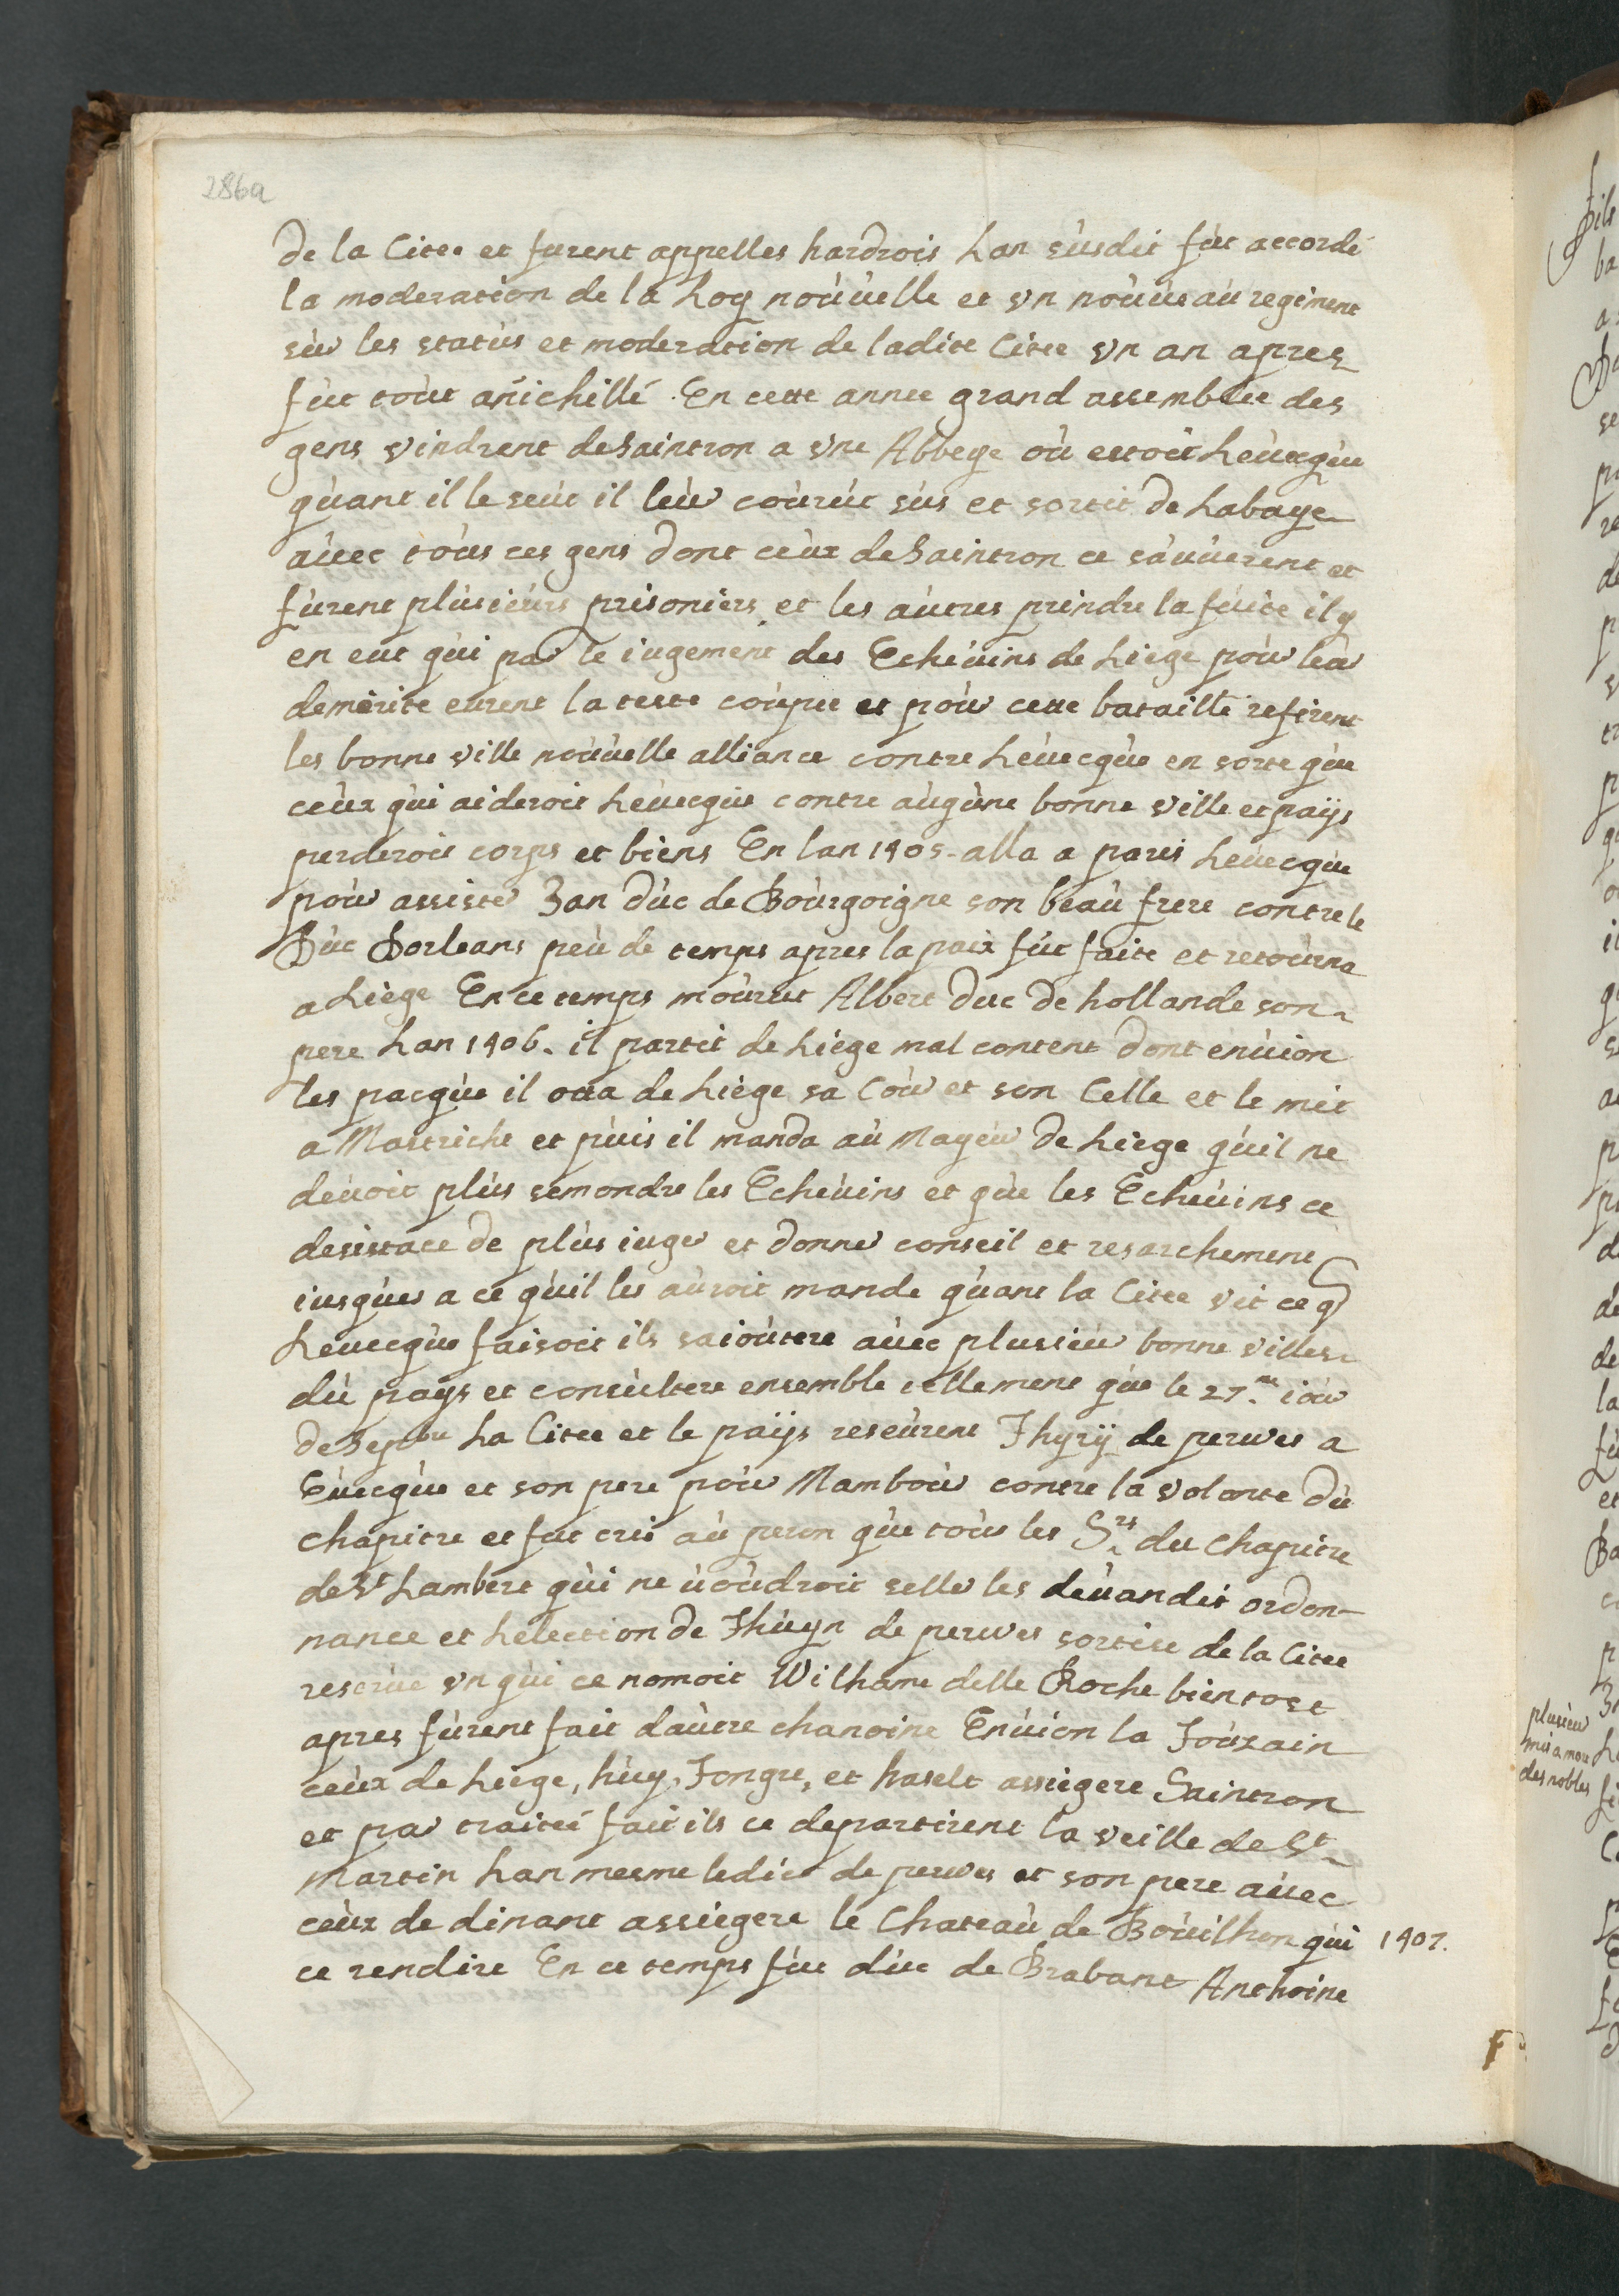 286a
de la Citee et furent appelles hardrois Lan susdit fut accordé
la moderation de la Loy nouuelle et vn nouueau regiment
sur les status et moderation de ladite Citee vn an apres
fut tout anichillé. En cette annee grand assemblée des
gens vindrent de Saintron a vne Abbeye où estoit Leuecque
quant il le seut il leur courut sus et sortit de Labaye
auec tous ces gens dont ceux de Saintron ce sauuerent et
furent plusieurs prisoniers et les autres prindre la fuite il y
en eut qui par le iugement des Escheuins de Liege pour leur
demerite eurent la teste coupee et pour cette bataille refirent
les bonne ville nouuelle alliance contre Leuecque en sorte que
ceux qui aideroit Leuecque contre augune bonne ville et paijs
perderoit corps et biens En lan 1405 alla a paris Leuecque
pour assister Jan duc de Bourgoigne son beau frere contre le
Duc Dorleans peu de temps apres la paix fut faite et retourna
a Liège En ce temps mourut Albert duc de hollande son
pere Lan 1406. il partit de Liège mal content dont enuion
les pacque il otta de Liège sa Cour et son Celle et le mit
a Mastricht et puis il manda au Mayeur de Liege quil ne
deuoit plus semondre les Echeuins et que les Echeuins ce
desistace de plus iuger et donner conseil et resarchement
iusques a ce quil les auroit mande quant la Citee vit ce q
Leuecque faisoit ils saioutere auec plusieur bonne villes
du pays et consultere ensemble tellement que le 27.me iour
de Sepbre La Citee et le paijs reseurent Thyrÿ de perwes a
Euecque et son pere pour Mambour contre la volonte du
chapitre et fut crié au peron que tous les Srs du Chapitre
de St Lambert qui ne uoudroit seller les deuandit ordon-
nance et Lelection de Thiryn de perwes sortise de la Citee
reserue vn qui ce nomoit Wilhame delle Roche bientost
apres furent fait dautre chanoine Enuion la Touxain
ceux de Liège, huy, Tongre, et haselt assiegere Saintron
et par traité fait ils ce departirent la veille de St
Martin Lan mesme ledict de perwes et son pere auec
ceux de dinant assiegere le Chateau de Bouilhon qui 1407.
ce rendire En ce temps fut duc de Brabant Anthoine
plusieur
mis a mort
des nobles